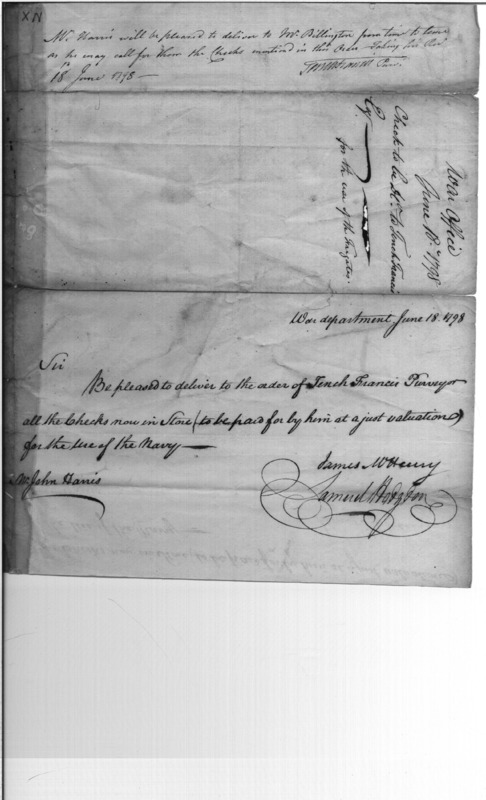 Mr. Harris will be pleased to deliver to Mr. Billington from time to time
as he may call for them the Checks mentioned in this Order taking his
18th June 1798 —
War Office
June 18th 1798
Check to be to Tench Francis
for the use of the
War department June 18. 1798
Sir
Be pleased to deliver to the order of Tench Francis Purveyor
all the Checks now in Store (to be paid for by him at a just valuation)
for the Use of the Navy —
James McHenry
Samuel Hodgdon
Mr John Harris